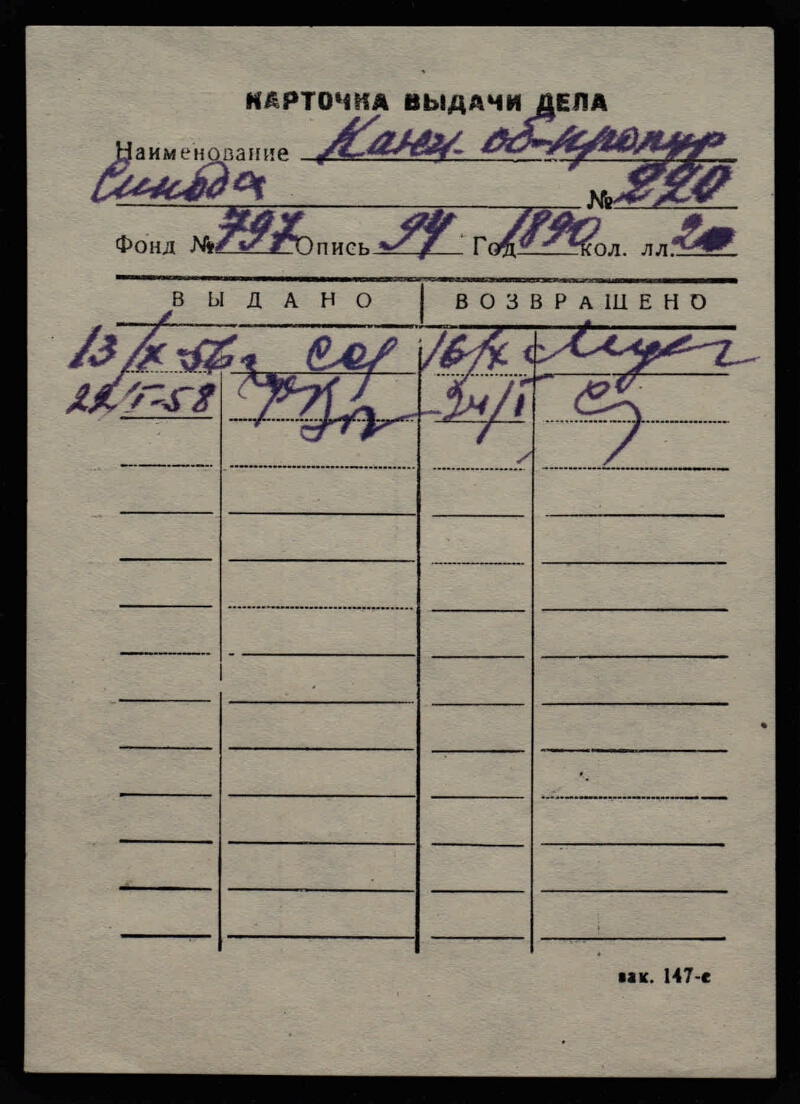 КАРТОЧКА ВЫДАЧИ ДЕЛА
Наименование Канц. об-прокур
Синода № 220
Фонд № 797 Опись 94 Год 1890 кол. лл.
ВЫДАНО ВОЗВРАЩЕНО
13/IX-56 г 16/IX
22/I-58 24/I
зак. 147-с